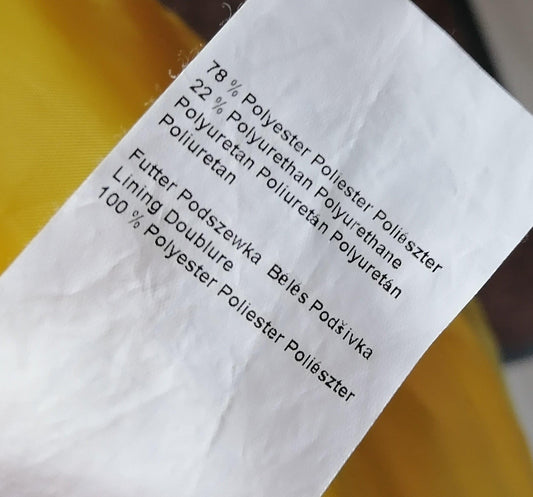 78 % Polyester Poliester Poliészter
22 % Polyurethan Polyurethane
Polyuretan Poliuretán Polyuretán
Poliuretan
Futter Podszewka Bélés Podšivka
Lining Doublure
100 % Polyester Poliester Poliészter